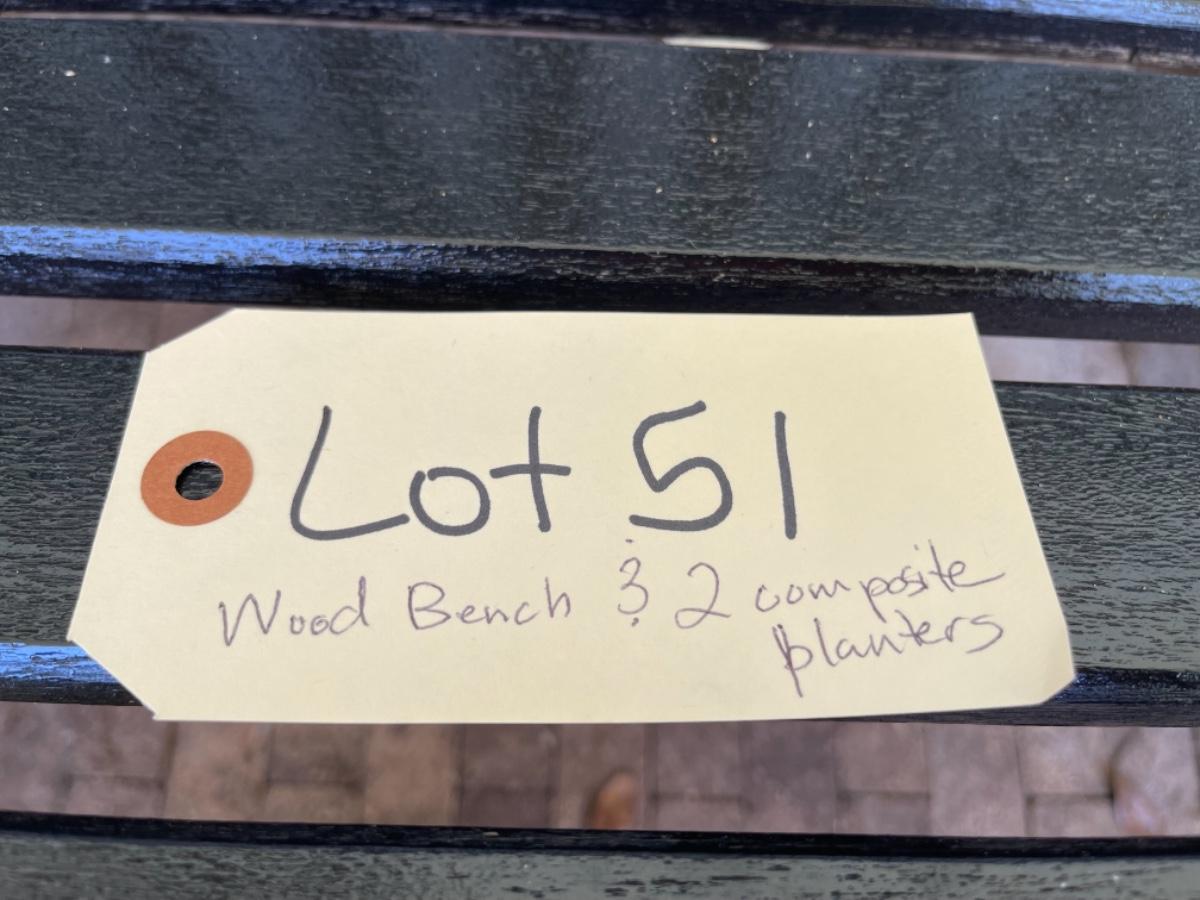 Lot 51
Wood Bench & 2 composite
planters